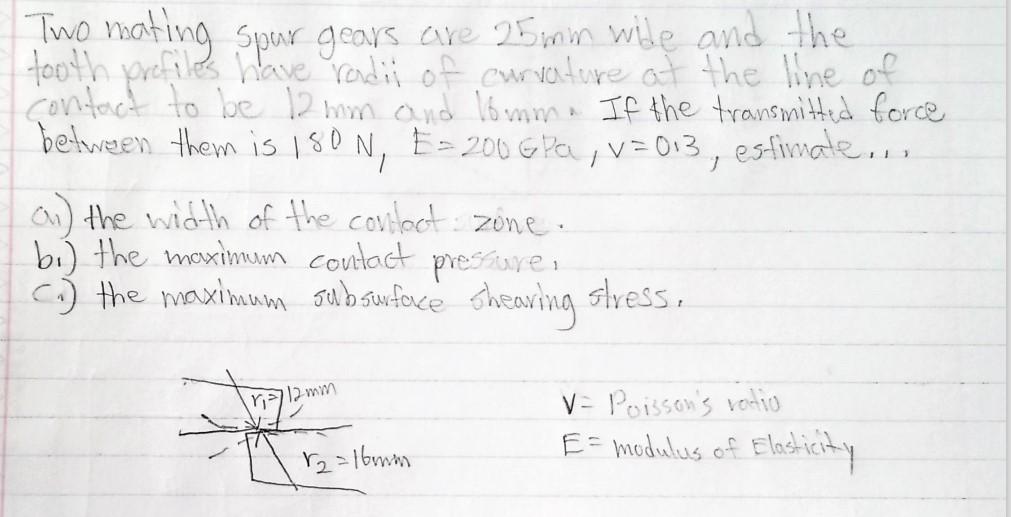 Two mating spur gears are 25mm wide and the
tooth profiles have radii of curvature at the line of
contact to be 12mm and 16mm. If the transmitted force
between them is 180 N, E=200 GPa, v=0.3, estimate...
a.) the width of the contact zone.
b.) the maximum contact pressure.
c.) the maximum subsurface shearing stress.
r₁=12mm
r₂=16mm
v= Poisson's ratio
E= modulus of Elasticity